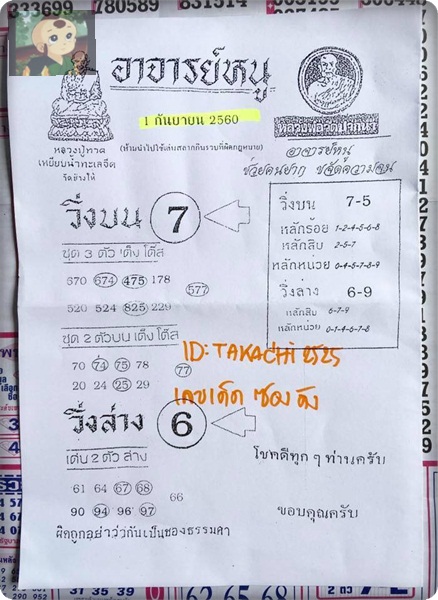 333699 780589 831514
อาจารย์หนู
1 กันยายน 2560
(ห้ามนำไปใช้เล่นสลากกินรวบที่ผิดกฎหมาย)
หลวงปู่ทวด
เหยียบน้ำทะเลจืด
วัดช้างให้
อาจารย์หนู
ช่วยคนยาก ขจัดความจน
วิ่งบน 7
ชุด 3 ตัว เต็ง โต๊ส
670 674 475 178
577
520 524 825 229
ชุด 2 ตัวบน เต็ง โต๊ส
70 74 75 78
77
20 24 25 29
วิ่งบน 7-5
หลักร้อย 1-2-4-5-6-8
หลักสิบ 2-5-7
หลักหน่วย 0-4-5-7-8-9
วิ่งล่าง 6-9
หลักสิบ 6-7-9
หลักหน่วย 0-1-4-6-7-8
ID: TAKACHI 2525
เลขเด็ด ซองดัง
วิ่งล่าง 6
เด่น 2 ตัว ล่าง
61 64 67 68
66
90 94 96 97
ผิดถูกอย่าว่ากันเป็นของธรรมดา
โชคดีทุก ๆ ท่านครับ
ขอบคุณครับ
62 65 68